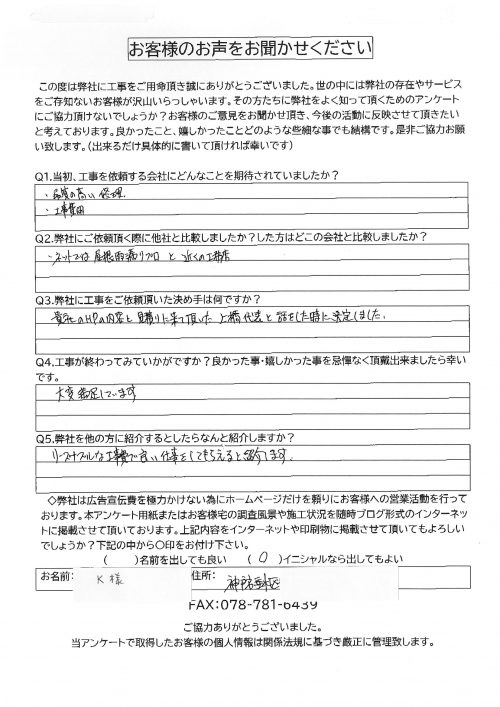 お客様のお声をお聞かせください
この度は弊社に工事をご用命頂き誠にありがとうございました。世の中には弊社の存在やサービス
をご存知ないお客様が沢山いらっしゃいます。その方たちに弊社をよく知って頂くためのアンケート
にご協力頂けないでしょうか？お客様のご意見をお聞かせ頂き、今後の活動に反映させて頂きたい
と考えております。良かったこと、嬉しかったことどのような些細な事でも結構です。是非ご協力お願
い致します。（出来るだけ具体的に書いて頂ければ幸いです）
Q1.当初、工事を依頼する会社にどんなことを期待されていましたか？
・品質の高い修理
・工事費用
Q2.弊社にご依頼頂く際に他社と比較しましたか？した方はどこの会社と比較しましたか？
・ネットでは屋根雨漏りプロと近くの工務店
Q3.弊社に工事をご依頼頂いた決め手は何ですか？
貴社のHPの内容と見積りに来て頂いた 代表と話をした時に決定しました。
Q4.工事が終わってみていかがですか？良かった事・嬉しかった事を忌憚なく頂戴出来ましたら幸い
です。
大変満足しています
Q5.弊社を他の方に紹介するとしたらなんと紹介しますか？
リーズナブルな工事費で良い仕事をしてもらえると紹介します。
◇弊社は広告宣伝費を極力かけない為にホームページだけを頼りにお客様への営業活動を行って
おります。本アンケート用紙またはお客様宅の調査風景や施工状況を随時ブログ形式のインターネッ
トに掲載させて頂いております。上記内容をインターネットや印刷物に掲載させて頂いてもよろし
いでしょうか？下記の中から〇印をお付け下さい。
（ ）名前を出しても良い （ 〇 ）イニシャルなら出してもよい
お名前： K様 住所： 神戸市東灘区
FAX:078-781-6439
ご協力ありがとうございました。
当アンケートで取得したお客様の個人情報は関係法規に基づき厳正に管理致します。